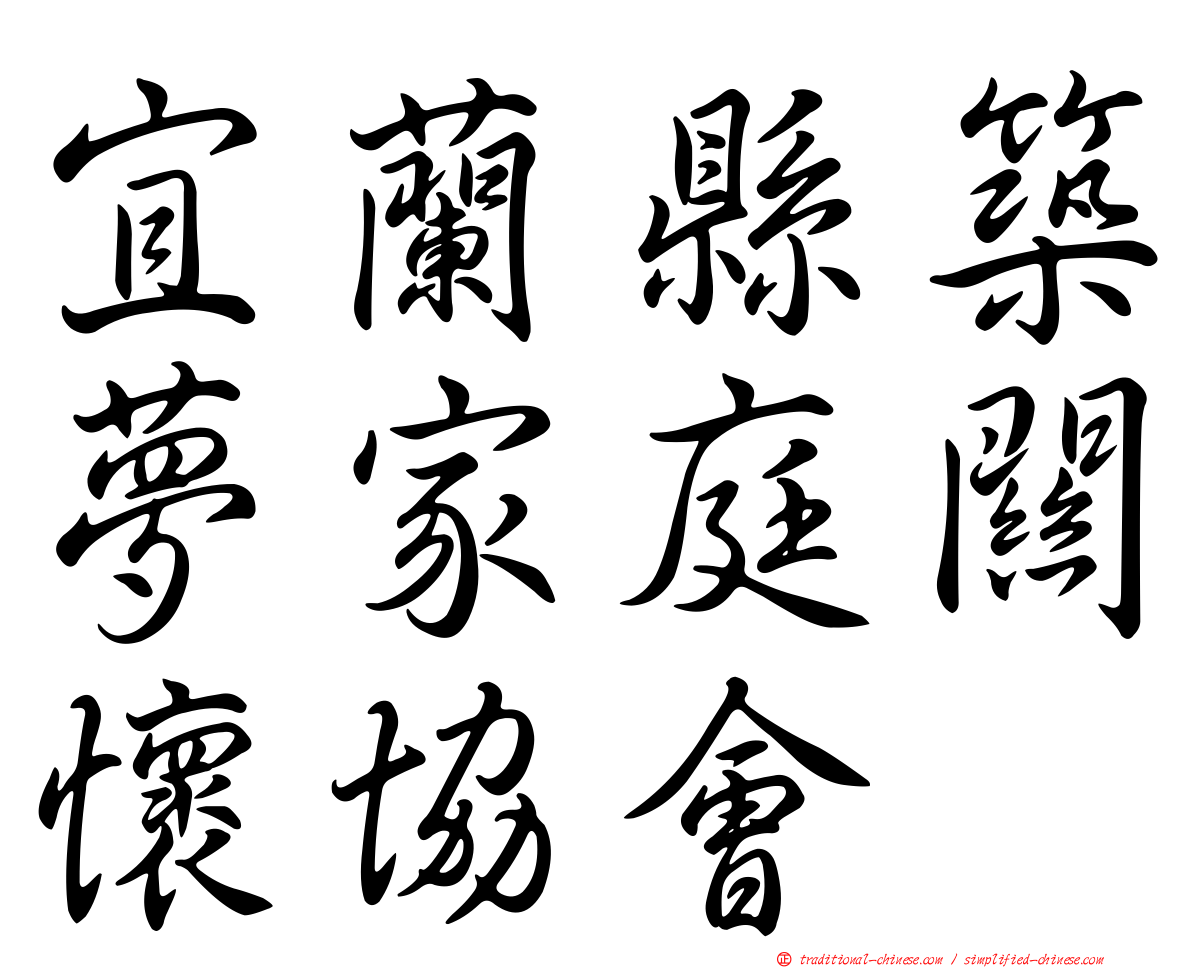 宜蘭縣築
夢家庭關
懷協會
㊣ traditional-chinese.com / simplified-chinese.com